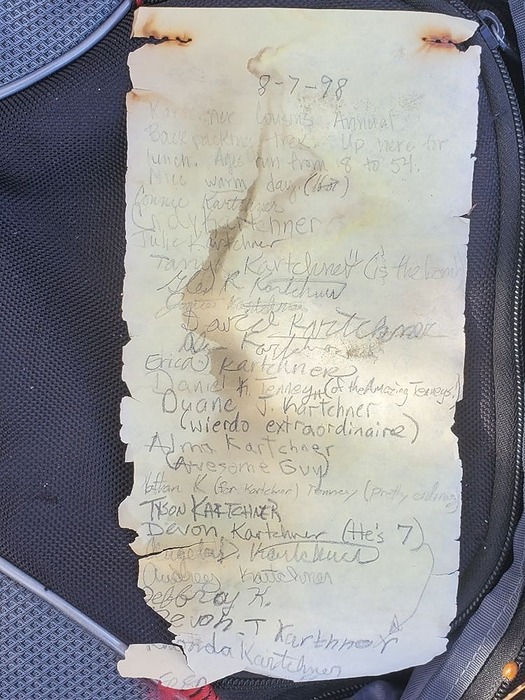 8-7-98
Kartchner Cousins Annual
Backpacking trek. Up here for
lunch. Ages run from 8 to 54.
Nice warm day. (Hot)
Connie Kartchner
Cindy Kartchner
Julie Kartchner
Kartchner (is the
R Kartchner
Kartchner
David Kartchner
Kartchner
Erica Kartchner
Daniel K. Tenney (of the Amazing Tenneys)
Duane J. Kartchner
(wierdo extraordinaire)
Alma Kartchner
(Awesome Guy)
Nathan K (for Kartchner) Tenney (pretty
TYSON KARTCHNER
Devon Kartchner (He's 7)
Kartchner
Audrey Kartchner
Jeffroy K.
Devon T Karthner
Kartchner